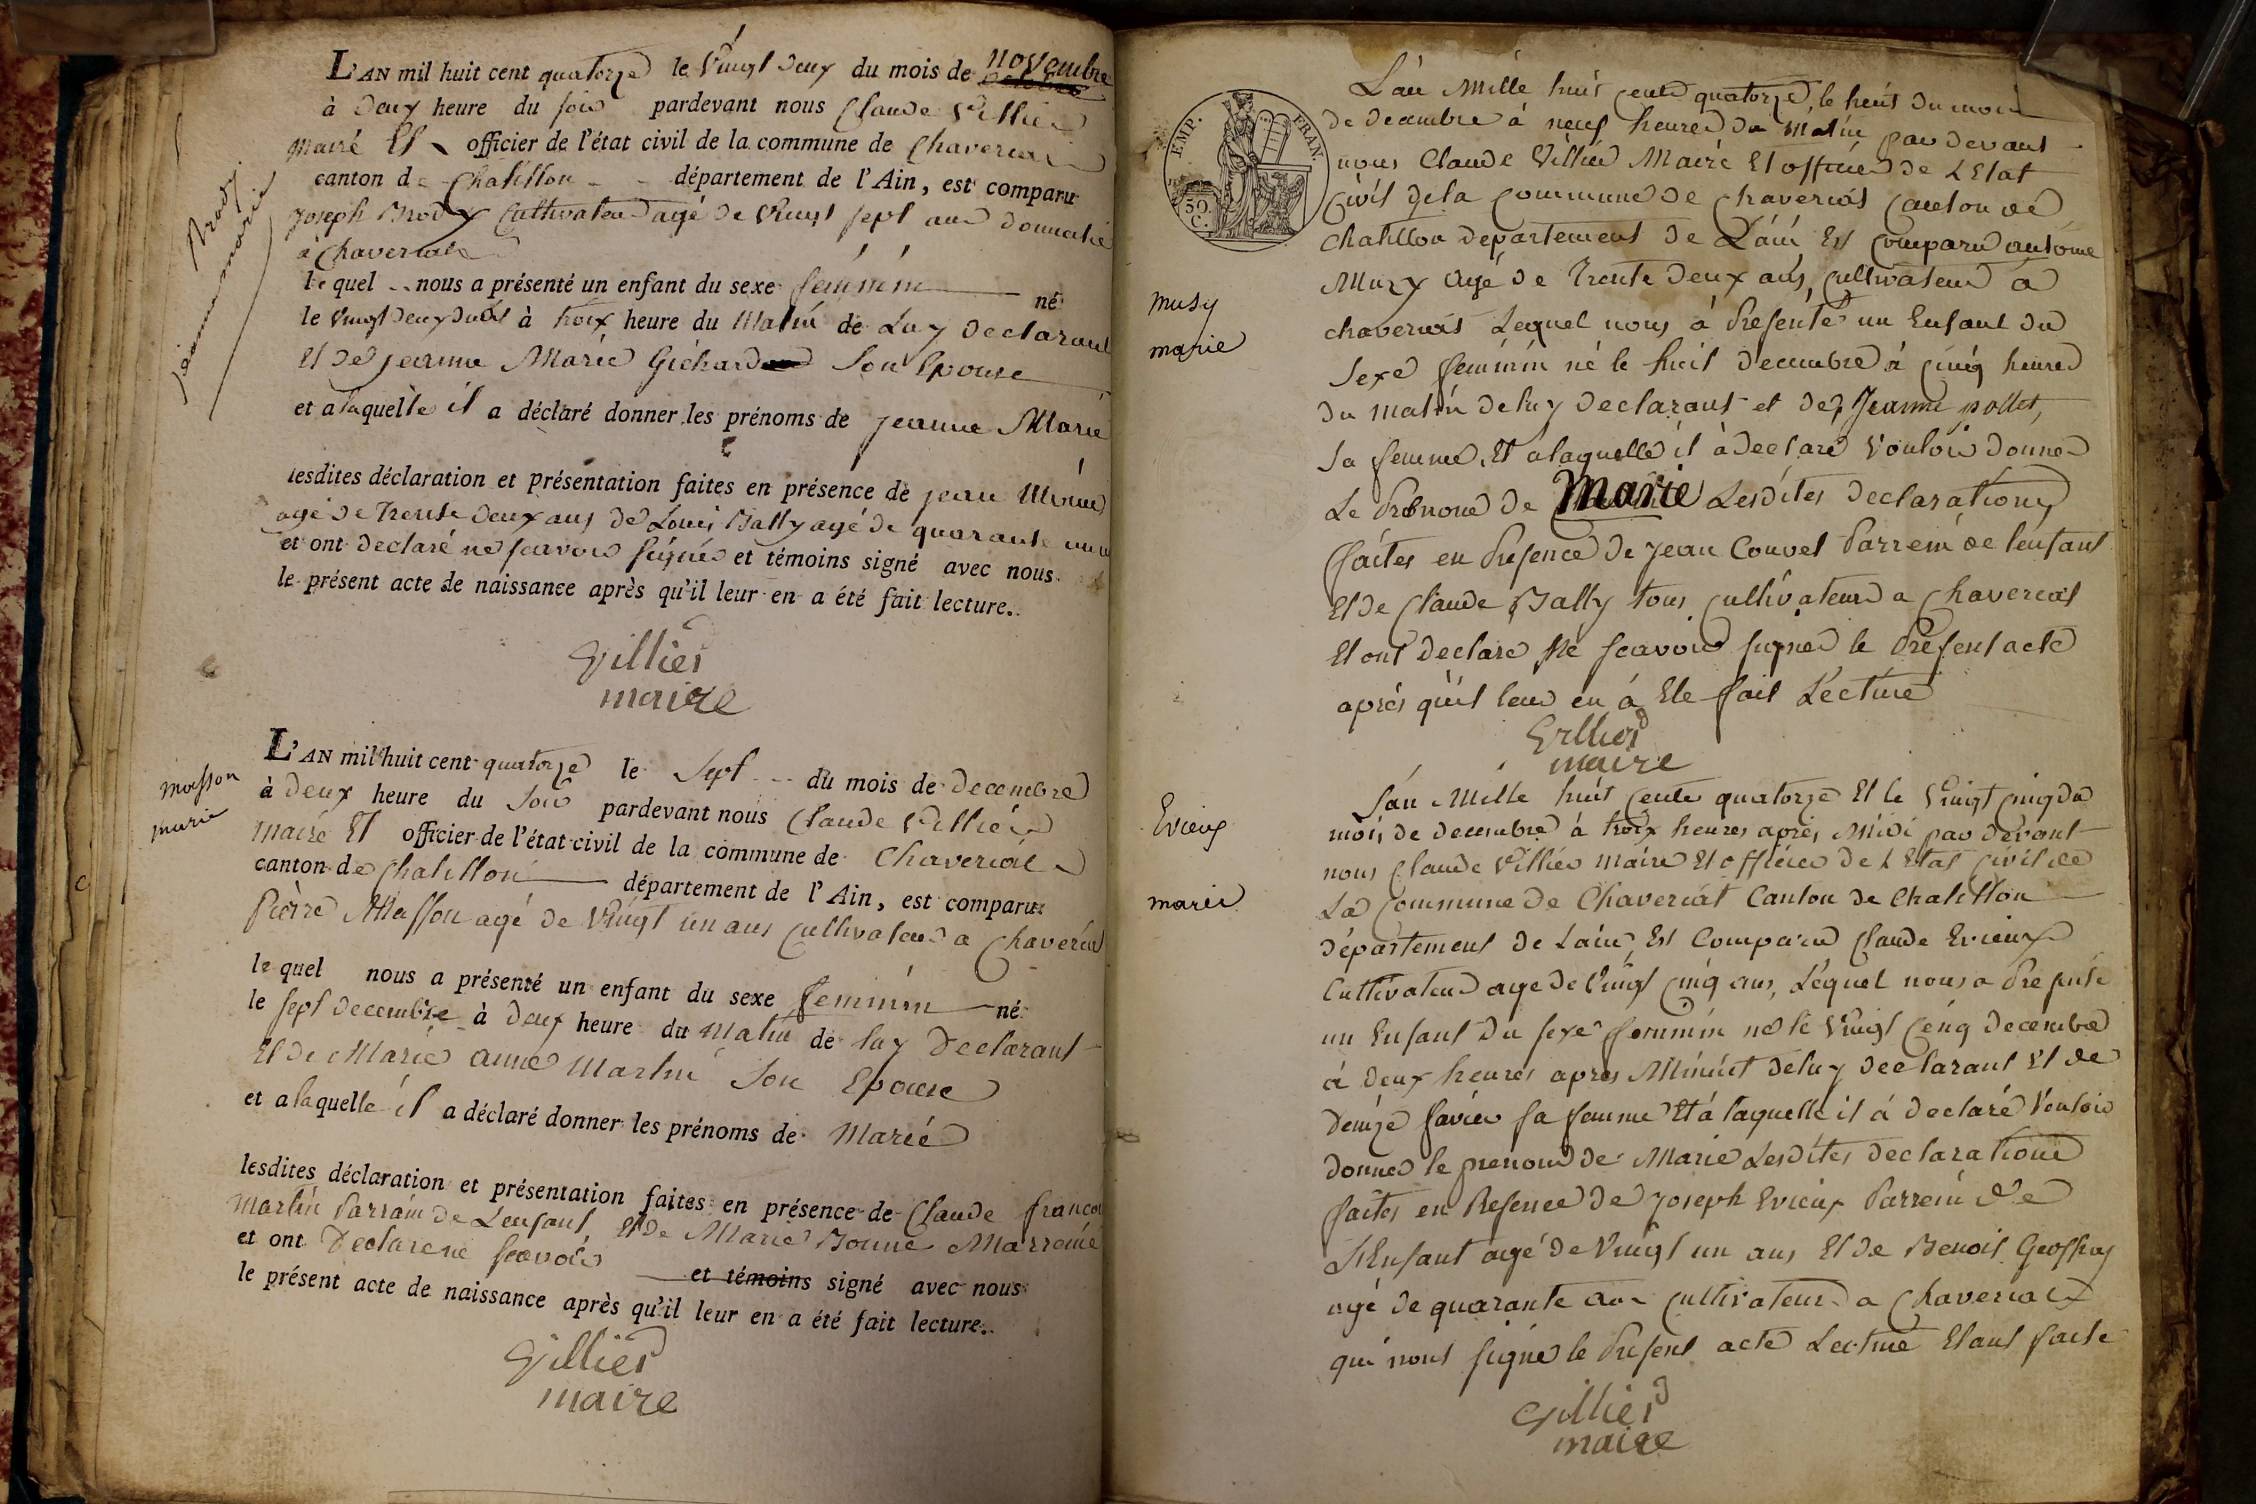 L'AN mil huit cent quatorze le Vingt deux du mois de novembre
à deux heure du soir pardevant nous Claude Villier
Maire Et officier de l'état civil de la commune de Chaveriat
canton de Chatillon département de l'Ain, est comparu
Joseph Brody Cultivateur agé de Vingt sept ans
à Chaveriat
le quel nous a présenté un enfant du sexe féminin né
le Vingt deux à troix heure du Matin de Luy declarant
Et de jeanne Marie Son Epouse
et a laquelle il a déclaré donner les prénoms de jeanne Marie
lesdites déclaration et présentation faites en présence de jean
agé de trente deux ans de Louis Bally agé de quarante
et ont declaré ne scavoir signé et témoins signé avec nous
le présent acte de naissance après qu'il leur en a été fait lecture.
Brody
jeanne marie
Villier
maire
masson
marie
L'AN mil huit cent quatorze le Sept du mois de decembre
à deux heure du Soir pardevant nous Claude Villier
Maire Et officier de l'état civil de la commune de Chaveriat
canton de Chatillon département de l'Ain, est comparu
Pierre Masson agé de Vingt un ans Cultivateur a Chaveriat
le quel nous a présenté un enfant du sexe feminin né
le sept decembre à deux heure du Matin de luy declarant
Et de Marie anne Martin Son Epouse
et a laquelle il a déclaré donner les prénoms de Marie
lesdites déclaration et présentation faites en présence de Claude
Martin Parrain de Lenfant et de Marie Bonne Marreine
et ont Declare ne scavoir et témoins signé avec nous
le présent acte de naissance après qu'il leur en a été fait lecture.
Villier
maire
EMP. FRAN.
50 C.
L'an Mille huit cent quatorze, le huit du mois
de decembre à neuf heures du Matin par devant
nous Claude Villier Maire Et officier de L Etat
Civil de la Commune de Chaveriat Canton de
Chatillon departement de L'ain Est Comparu antoine
Muzy agé de trente deux ans, cultivateur à
chaveriat Lequel nous à Presenté un Enfant du
Sexe feminin né le huit decembre à cinq heures
du matin de luy declarant et de Jeanne pollet,
Sa femme, Et à laquelle il à declaré Vouloir donner
Le Prénom de Marie Lesdites declarations
faites en Presence de jean Couvet Parrein de lenfant
Et de Claude Bally tous cultivateur a Chaveriat
Et ont declaré Ne scavoir signer le Present acte
aprés qu'il leur en à Ete fait Lecture
musy
marie
Villier
maire
Evieux
marie
L'an Mille huit cent quatorze Et le Vingt cinq du
mois de decembre à troix heures aprés Midi par devant
nous Claude Villier Maire Et officier de L Etat civil de
La Commune de Chaveriat Canton de Chatillon
département de Lain, Est Comparu Claude Evieux
Cultivateur agé de Vingt cinq ans, Lequel nous a Presenté
un Enfant du sexe feminin né le Vingt cinq decembre
à deux heures aprés Minuit de luy declarant Et de
Denize favier sa femme Et à laquelle il à declaré Vouloir
donner le prenom de Marie Lesdites declaration
faites en Presence de joseph Evieux Parrein de
L'Enfant agé de Vingt un ans Et de Benoit Geoffray
agé de quarante ans cultivateur a Chaveriat
qui nont signé le Present acte Lecture Etant faite
Villier
maire